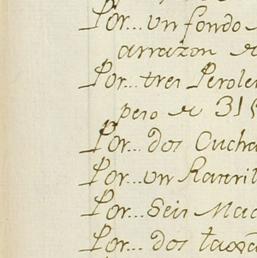 Por... un fondo
arrazon de
Por... tres Perole
peso de 315
Por... dos Cucha
Por... un
Por... Seis Mac
Por... dos